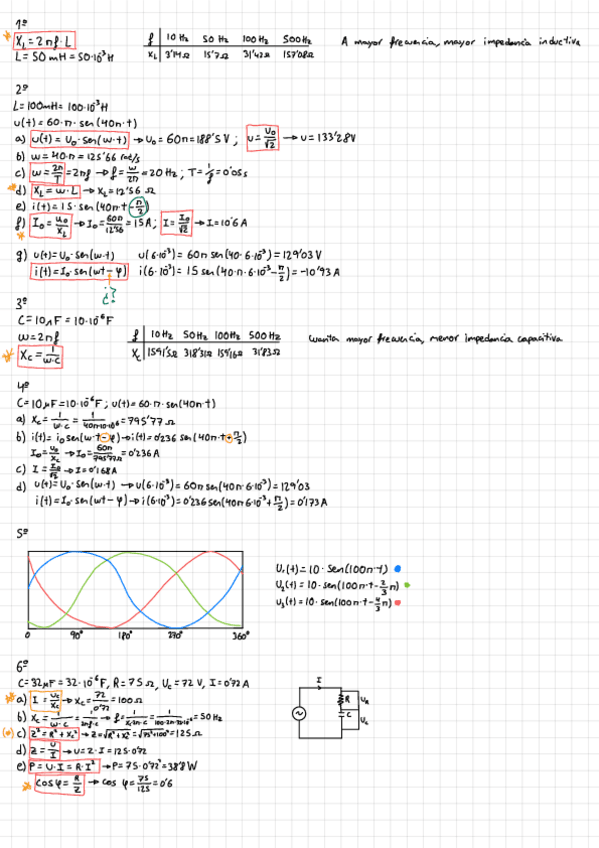 1º
X_L = 2πf·L
L = 50 mH = 50·10⁻³ H
f 10 Hz 50 Hz 100 Hz 500 Hz
X_L 3'14Ω 15'7Ω 31'42Ω 157'08Ω
A mayor frecuencia, mayor impedancia inductiva
2º
L = 100mH = 100·10⁻³ H
u(t) = 60·π·sen(40π·t)
a) u(t) = U₀·sen(w·t) → U₀ = 60π = 188'5 V ; U = U₀/√2 → U = 133'28V
b) w = 40·π = 125'66 rad/s
c) w = 2π/T = 2πf → f = w/2π = 20 Hz ; T = 1/f = 0'05s
d) X_L = w·L → X_L = 12'56 Ω
e) i(t) = 15·sen(40πt - π/2)
f) I₀ = U₀/X_L → I₀ = 60π/12'56 = 15A ; I = I₀/√2 → I = 10'6A
g) u(t) = U₀·sen(w·t) u(6·10⁻³) = 60π sen(40·6·10⁻³) = 129'03 V
i(t) = I₀·sen(wt - φ) i(6·10⁻³) = 15 sen(40·π·6·10⁻³ - π/2) = -10'93 A
¿?
3º
C = 10μF = 10·10⁻⁶ F
w = 2πf
X_C = 1/w·C
f 10 Hz 50 Hz 100 Hz 500 Hz
X_C 1591'5Ω 318'31Ω 159'16Ω 31'83Ω
cuanta mayor frecuencia, menor impedancia capacitiva
4º
C = 10μF = 10·10⁻⁶ F ; u(t) = 60·π·sen(40π·t)
a) X_C = 1/w·C = 1/40π·10·10⁻⁶ = 795'77Ω
b) i(t) = i₀ sen(w·t - φ) → i(t) = 0'236 sen(40π·t + π/2)
I₀ = U₀/X_C → I₀ = 60π/795'77Ω = 0'236A
c) I = I₀/√2 → I = 0'168A
d) u(t) = U₀·sen(w·t) → u(6·10⁻³) = 60π sen(40π·6·10⁻³) = 129'03
i(t) = I₀·sen(wt - φ) → i(6·10⁻³) = 0'236 sen(40π 6·10⁻³ + π/2) = 0'173A
5º
0 90º 180º 270º 360º
U₁(t) = 10·sen(100π·t)
U₂(t) = 10·sen(100π·t - 2/3 π)
U₃(t) = 10·sen(100π·t - 4/3 π)
6º
C = 32μF = 32·10⁻⁶ F, R = 75Ω, U_C = 72 V, I = 0'72A
a) I = U_C/X_C → X_C = 72/0'72 = 100Ω
b) X_C = 1/w·C = 1/2πf·C → f = 1/X_C·2π·C = 1/100·2π·32·10⁻⁶ = 50 Hz
c) Z² = R² + X_C² → Z = √R² + X_C² = √75² + 100² = 125Ω
d) Z = U/I → U = Z·I = 125·0'72
e) P = U·I = R·I² → P = 75·0'72² = 38'8 W
cos φ = R/Z → cos φ = 75/125 = 0'6
I
R
U_R
C
U_C